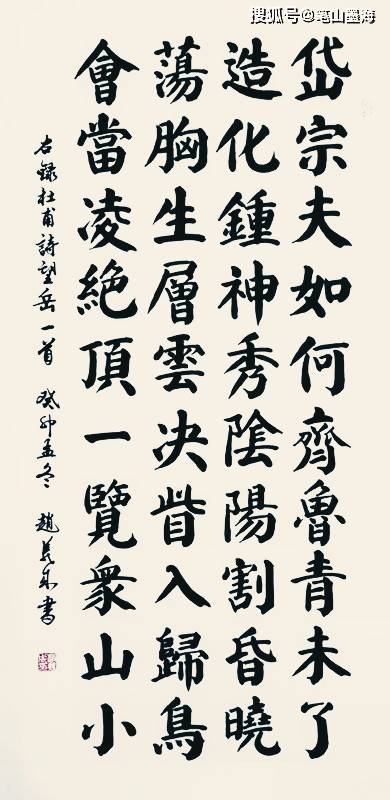 搜狐号@笔山墨海
岱宗夫如何齊魯青未了
造化鍾神秀陰陽割昏曉
蕩胸生層雲决眥入歸鳥
會當凌絶頂一覽衆山小
右録杜甫詩望岳一首 癸卯孟冬 趙書